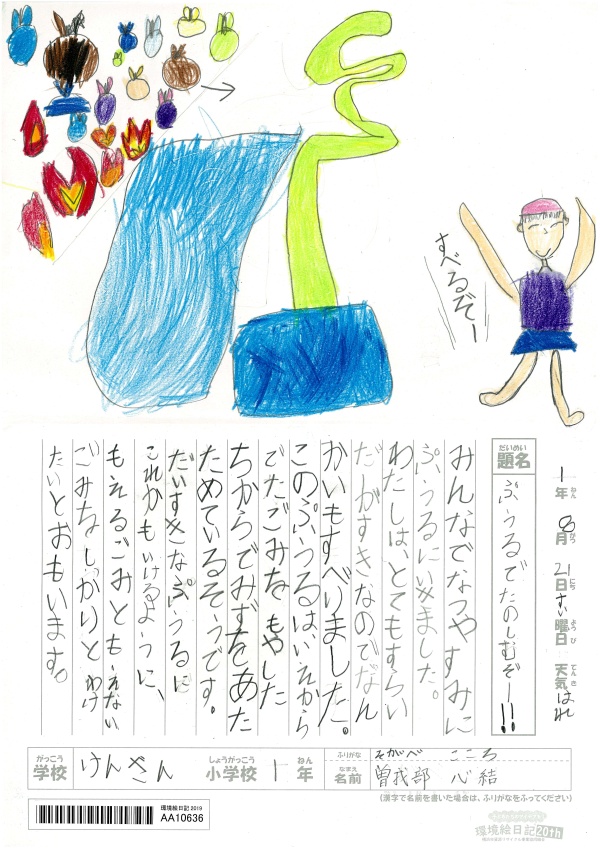 すべるぞー
1年 8月 21日 すい曜日 天気 はれ
ねん がつ にち ようび てんき
だいめい
題名
ぷうるでたのしむぞー!!
みんなでなつやすみに
ぷうるにいきました。
わたしは、とてもすらい
だーがすきなのでなん
かいもすべりました。
このぷうるはいえから
でたごみをもやした
ちからでみずをあた
ためているそうです。
だいすきなぷうるに
これからもいけるように、
もえるごみともえない
ごみをしっかりとわけ
たいとおもいます。
がっこう
学校
けんざん
しょうがっこう
小学校
1
ねん
年
ふりがな
そがべ こころ
なまえ
名前
曽我部 心結
(漢字で名前を書いた場合は、ふりがなをふってください)
環境絵日記2019
AA10636
環境絵日記20th